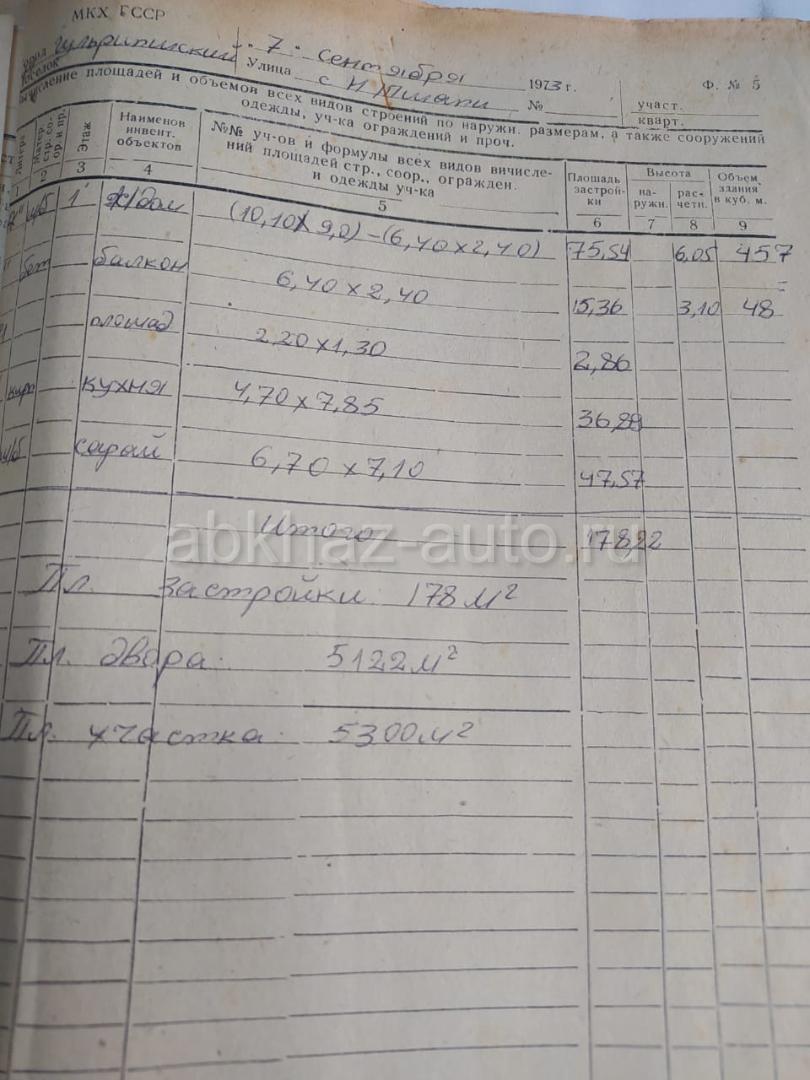 МКХ ГССР
Гульрипшский "7" сентября 1973 г. Ф. № 5
поселок Улица с Н Пшапи № участ.
кварт.
числение площадей и объемов всех видов строений по наружн. размерам, а также сооружений
одежды, уч-ка ограждений и проч.
Литера
Матер. стр. со-ор. и пр.
Этаж
Наименов инвент. объектов
№№ уч-ов и формулы всех видов вичисле-
ний площадей стр., соор., огражден.
и одежды уч-ка
Площадь застрой-ки
Высота
на-ружн.
рас-четн.
Объем здания в куб. м.
1 2 3 4 5 6 7 8 9
ш/б 1 ж/дом (10,10 х 9,0) – (6,40 х 2,40) 75,54 6,05 457
бет балкон 6,40 х 2,40 15,36 3,10 48
площад 2,20 х 1,30 2,86
кирп кухня 4,70 х 7,85 36,89
ш/б сарай 6,70 х 7,10 47,57
Итого 178,22
Пл. застройки 178 м²
Пл. двора. 5122 м²
Пл. участка. 5300 м²
abkhaz-auto.ru